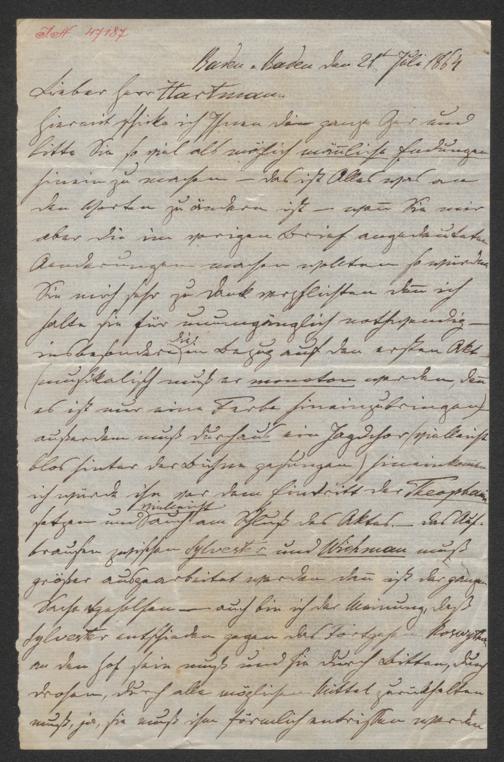 J.N. 47187
Baden-Baden den 21t Juli 1864
Lieber Herr Hartmann
Hiermit schicke ich Ihnen die ganze Oper und
bitte Sie so viel als möglich männliche Endungen
hinein zu machen – das ist Alles was an
den Worten zu ändern ist – wenn Sie mir
aber die im vorigen Brief angedeuteten
Aenderungen machen wollten so würden
Sie mich sehr zu Dank verpflichten denn ich
halte sie für unumgänglich nothwendig –
insbesondere in Bezug auf den ersten Akt
(musikalisch muß er monoton werden, denn
es ist nur eine Farbe hineinzubringen)
außerdem muß durchaus ein Jagdchor (vielleicht
blos hinter der Bühne gesungen) hineinkommen
ich würde ihn vor dem Eintritt der Theophan
setzen und vielleicht auch am Schluß des Aktes. – das Auf-
brausen zwischen Sylvester und Wichman muß
größer ausgearbeitet werden dann ist der ganzen
Sache geholfen – auch bin ich der Meinung, daß
Sylvester entschieden gegen das Fortgehen Roswitha
an den Hof sein muß und sie durch Bitten, durch
drohen, durch alle möglichen Mittel zurückhalten
muß, ja, sie muß ihm förmlich entrissen werden